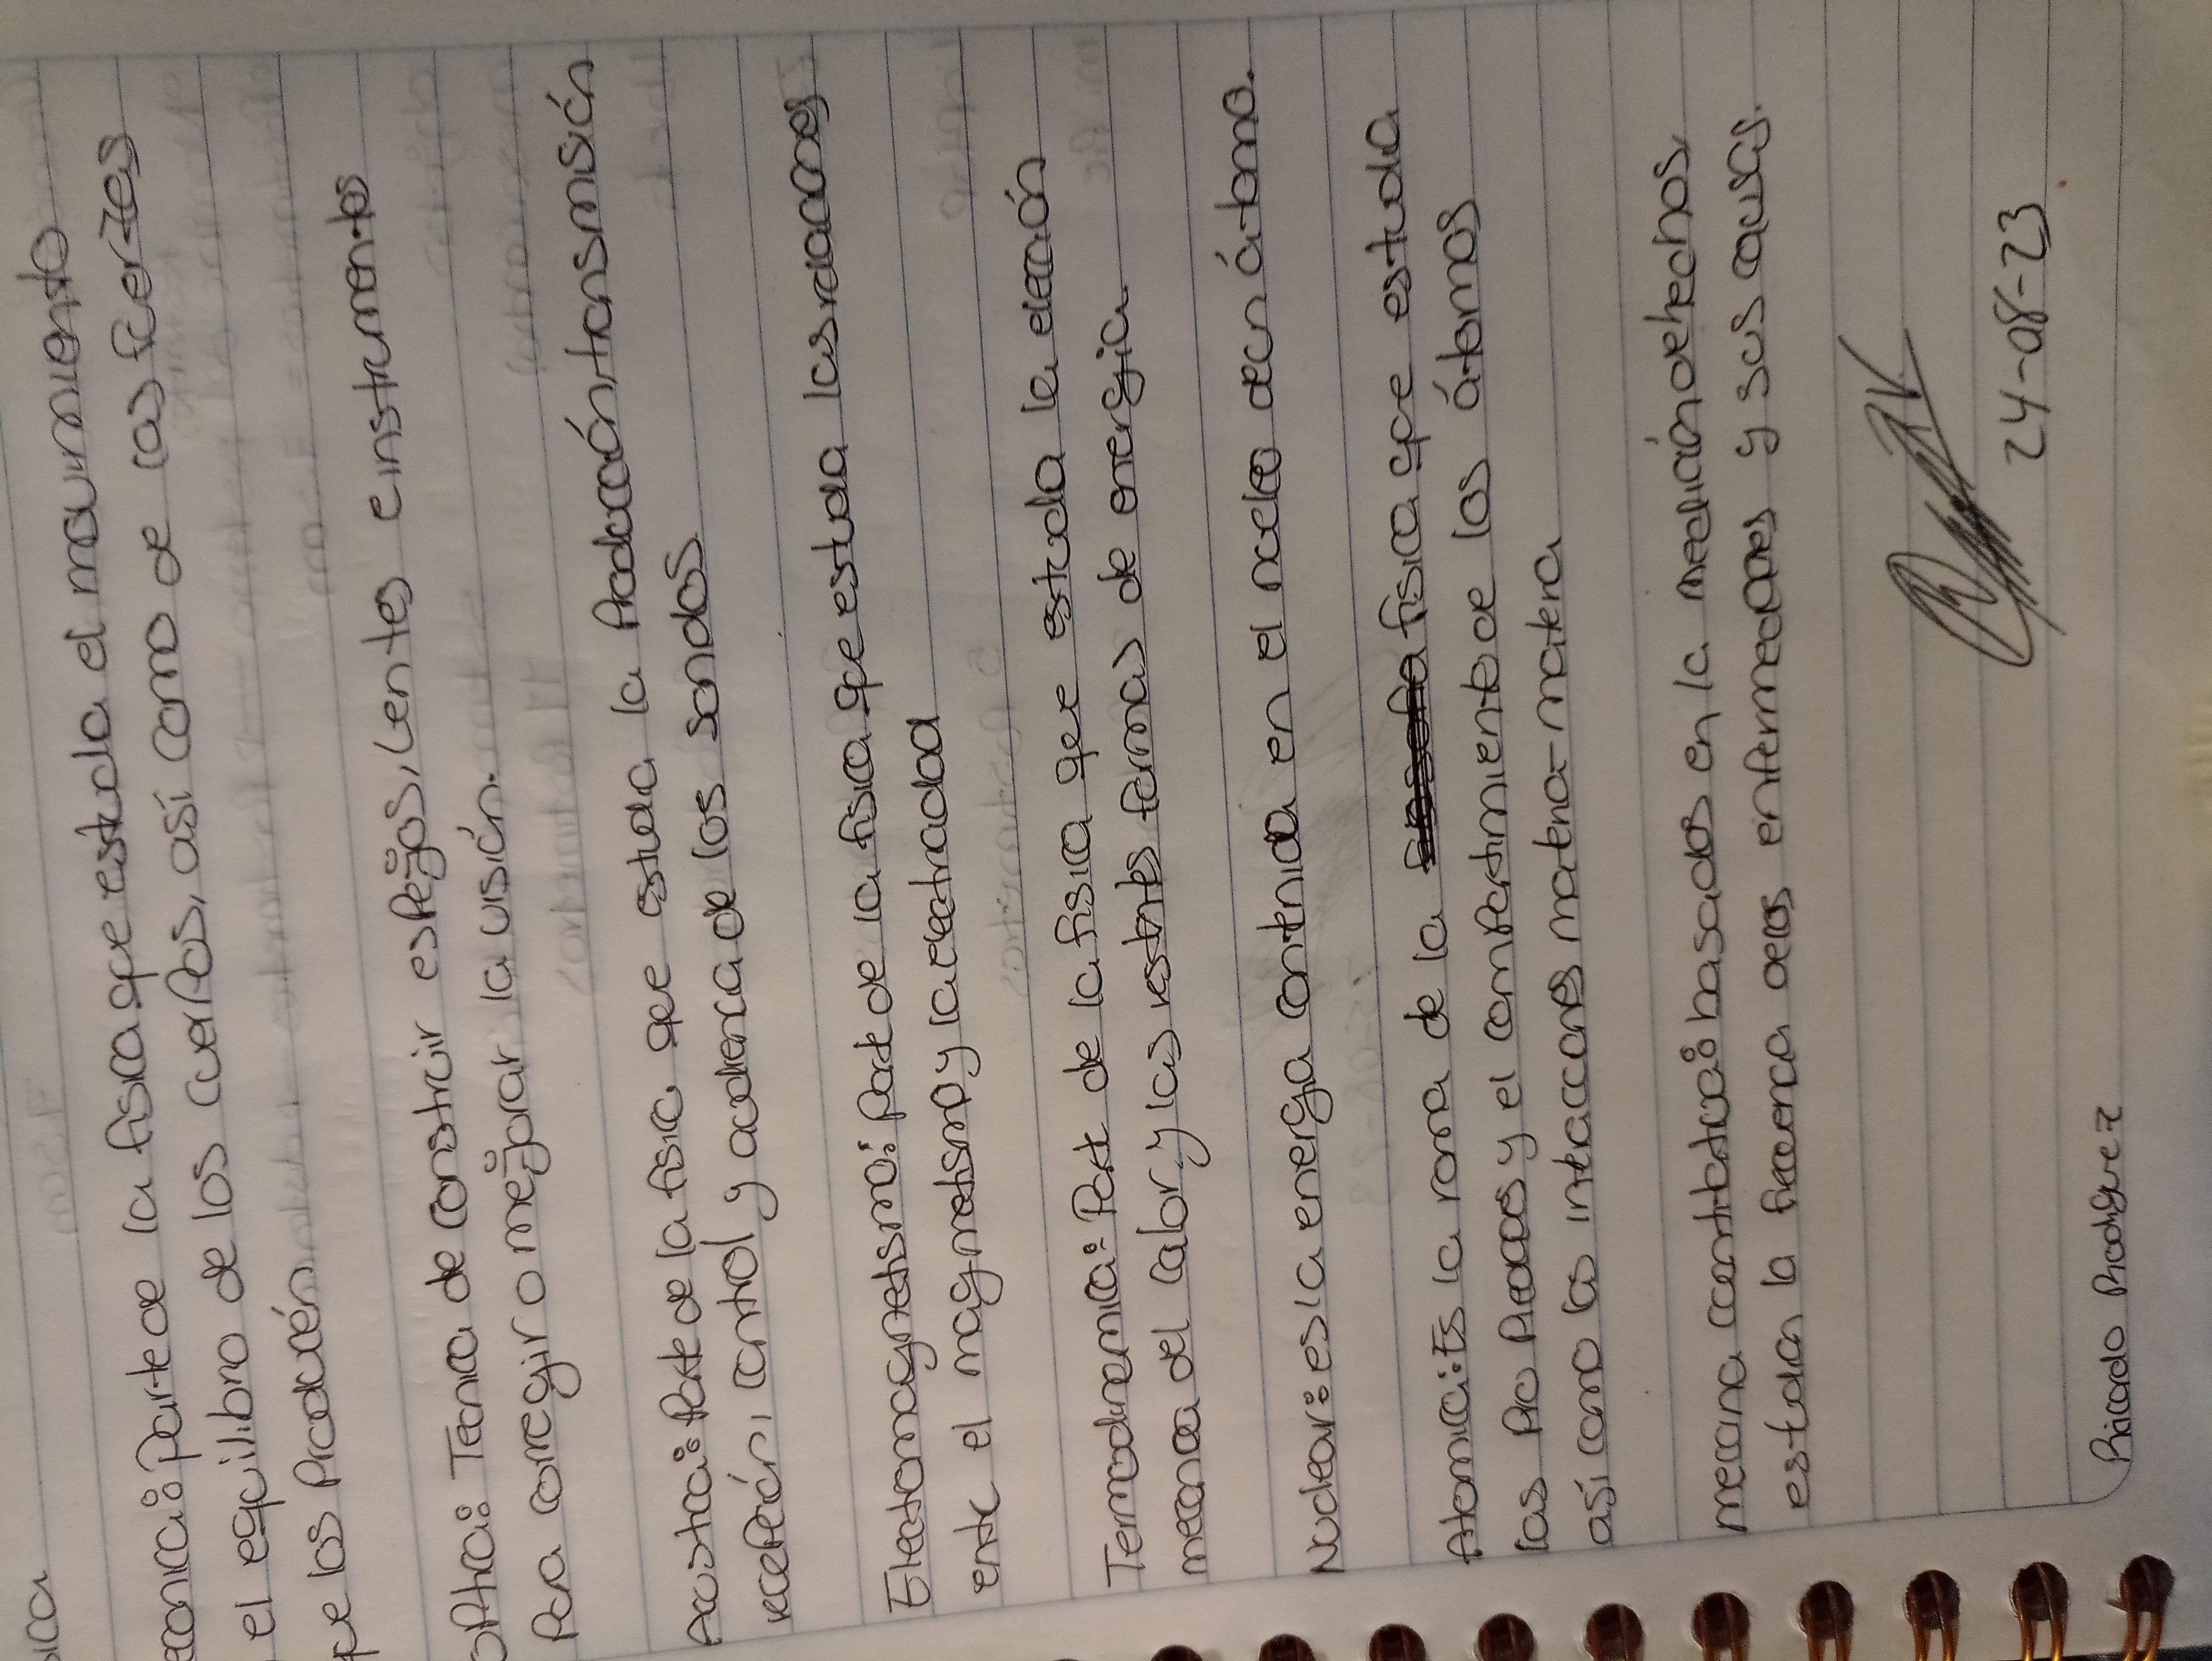 sica
ecanica: parte de la fisica que estudia el movimiento
el equilibrio de los cuerpos, así como de las fuerzas
que los producén
optica: Tecnica de construir espejos, Lentes e instrumentos
para corregir o mejorar la visión.
Acustica: Parte de la fisica que estudia la Producción, transmisión
recepción, control y audiencia de los sonidos.
Electromagnetismo: Parte de la fisica que estudia las reacciones
ente el magnetismo y la electricidad
Termodinamica: Parte de la fisica que estudia la elección
mecanica del calor y las restantes formas de energia.
Nuclear: es la energia contenida en el nucleo de un átomo.
Atomica: Es la rama de la fisica que estudia
las Propiedades y el comportamiento de los átomos
así como las interacciones materia-materia
mecanica cuantitativa: basados en la medición de hechos,
estudian la frecuencia de las enfermedades y sus causas.
24-08-23
Ricardo Rodriguez